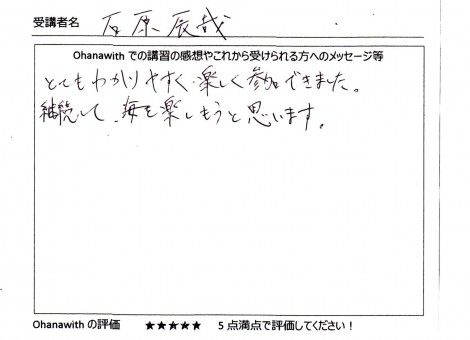 受講者名 石原辰哉
Ohanawith での講習の感想やこれから受けられる方へのメッセージ等
とてもわかりやすく、楽しく参加できました。
継続して、海を楽しもうと思います。
Ohanawith の評価 ★★★★★ 5点満点で評価してください!